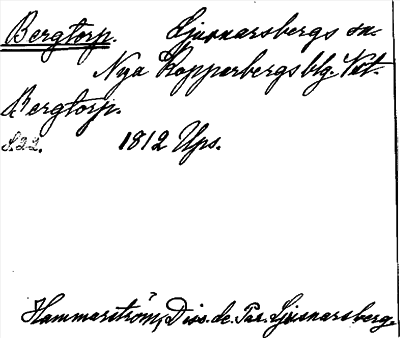 Bergtorp. Ljusnarsbergs sn.
Nya Kopparbergs blg. Vstl.
Bergtorp.
S. 22. 1812 Ups.
Hammarström, Diss. de Par. Ljusnarsberg.